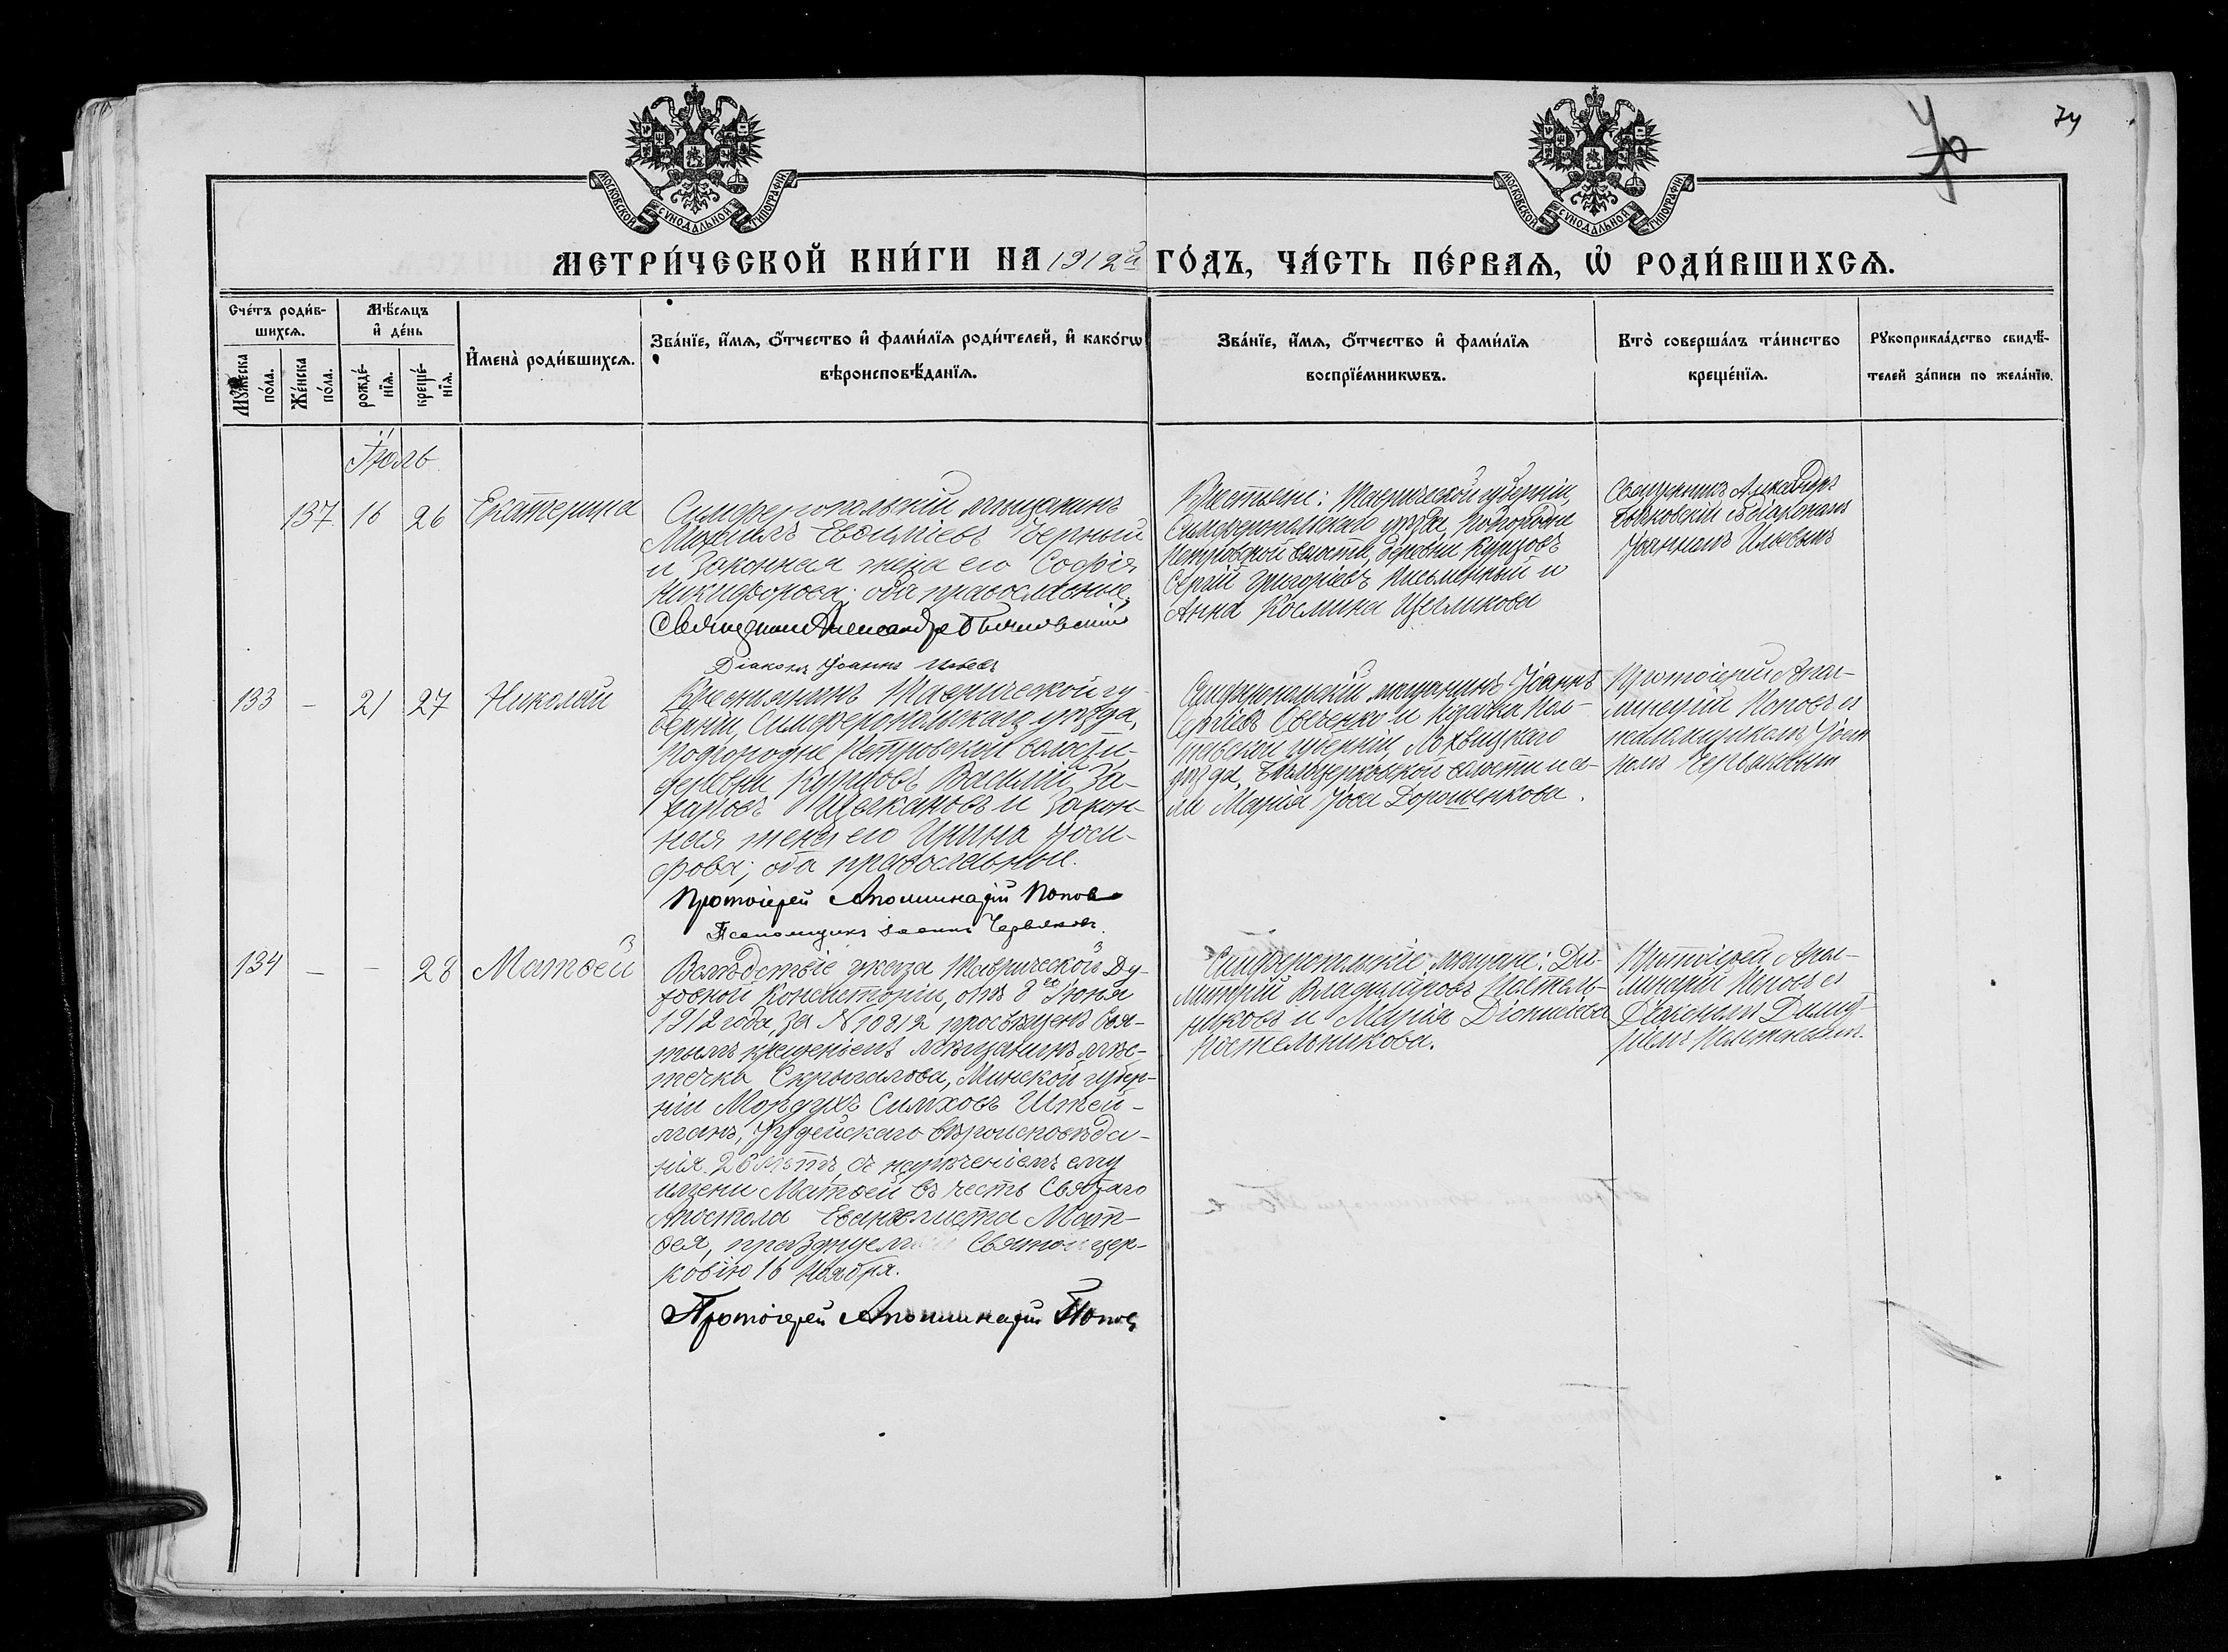 74
МОСКОВСКОЙ СѴНОДАЛЬНОЙ ТИПОГРАФІИ
МОСКОВСКОЙ СѴНОДАЛЬНОЙ ТИПОГРАФІИ
МЕТРИ́ЧЕСКОЙ КНИ́ГИ НА 1912й ГО́ДЪ, ЧА́СТЬ ПЕ́РВАѦ, Ѡ҆ РОДИ́ВШИХСѦ.
Сче́тъ роди́в-
шихсѧ.
Мꙋ́жеска
по́ла.
Же́нска
по́ла.
Мѣ́сѧцъ
и҆ де́нь
рожде́-
нїѧ.
креще́-
нїѧ.
И҆мена̀ роди́вшихсѧ.
Зва́нїе, и҆́мѧ, ѻ҆́тчество и҆ фами́лїѧ роди́телей, и҆ како́гѡ
вѣроисповѣ́данїѧ.
Зва́нїе, и҆́мѧ, ѻ҆́тчество и҆ фами́лїѧ
воспрїе́мникѡвъ.
Кто̀ соверша́лъ та́инство
креще́нїѧ.
Рꙋкоприкла́дство свидѣ́-
телей за́писи по жела́нїю.
Іюль
137 16 26 Екатерина
Симферопольскій мѣщанинъ
Михаилъ Евфиміевъ Черный
и законная жена его Софія
Никифорова; оба православные.
Священникъ Александръ
Діаконъ Іоаннъ Ильевъ
Крестьяне: Таврической губерніи,
Симферопольскаго уѣзда, Подгородне
Петровской волости, деревни Курцовъ
Сергій Григоріевъ Письменный и
Анна Космина Щегликова
Священникъ Александръ
съ діакономъ
Іоанномъ Ильевымъ
133 – 21 27 Николай
Крестьянинъ Таврической гу-
берніи, Симферопольскаго уѣзда,
Подгородне Петровской волости,
деревни Курцовъ Василій За-
харовъ и закон-
ная жена его Ирина Іоси-
фова; оба православные.
Протоіерей Аполлинарій Попов
Псаломщикъ Іоаннъ Червяковъ.
Симферопольскій мѣщанинъ Іоаннъ
Сергіевъ Овченко и казачка Пол-
тавской губерніи, Лохвицкаго
уѣзда, Бѣлоцерковской волости и се-
ла Марія Іова Дорошенкова.
Протоіерей Апол-
линарій Поповъ съ
псаломщикомъ Іоан-
номъ Червяковым
134 – – 28 Матѳей
Вслѣдствіе указа Таврической Ду-
ховной Консисторіи, отъ 8го Іюня
1912 года за N 10812 просвѣщенъ Свя-
тымъ крещеніемъ мѣщанинъ мѣс-
течка Скрыгалова, Минской губер-
ніи Мордухъ Симховъ Штей-
манъ, Іудейскаго вѣроисповѣда-
нія. 26 лѣтъ, съ нареченіемъ ему
имени Матѳей въ честь Святаго
Апостола Евангелиста Мат-
ѳея, празднуем Святой цер-
ковію 16 Ноября.
Протоіерей Аполлинарій Попов
Симферопольскіе мѣщане: Ди-
митрій Владиміровъ Постель-
никовъ и Марія Діонисіева
Постельникова.
Протоіерей Апол-
линарій Поповъ съ
Діакономъ Димит-
ріемъ